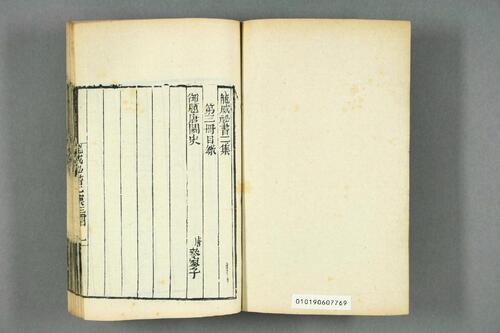 龍威秘書二集
第三冊目錄
御題唐闕史
唐 參寥子
010190607769